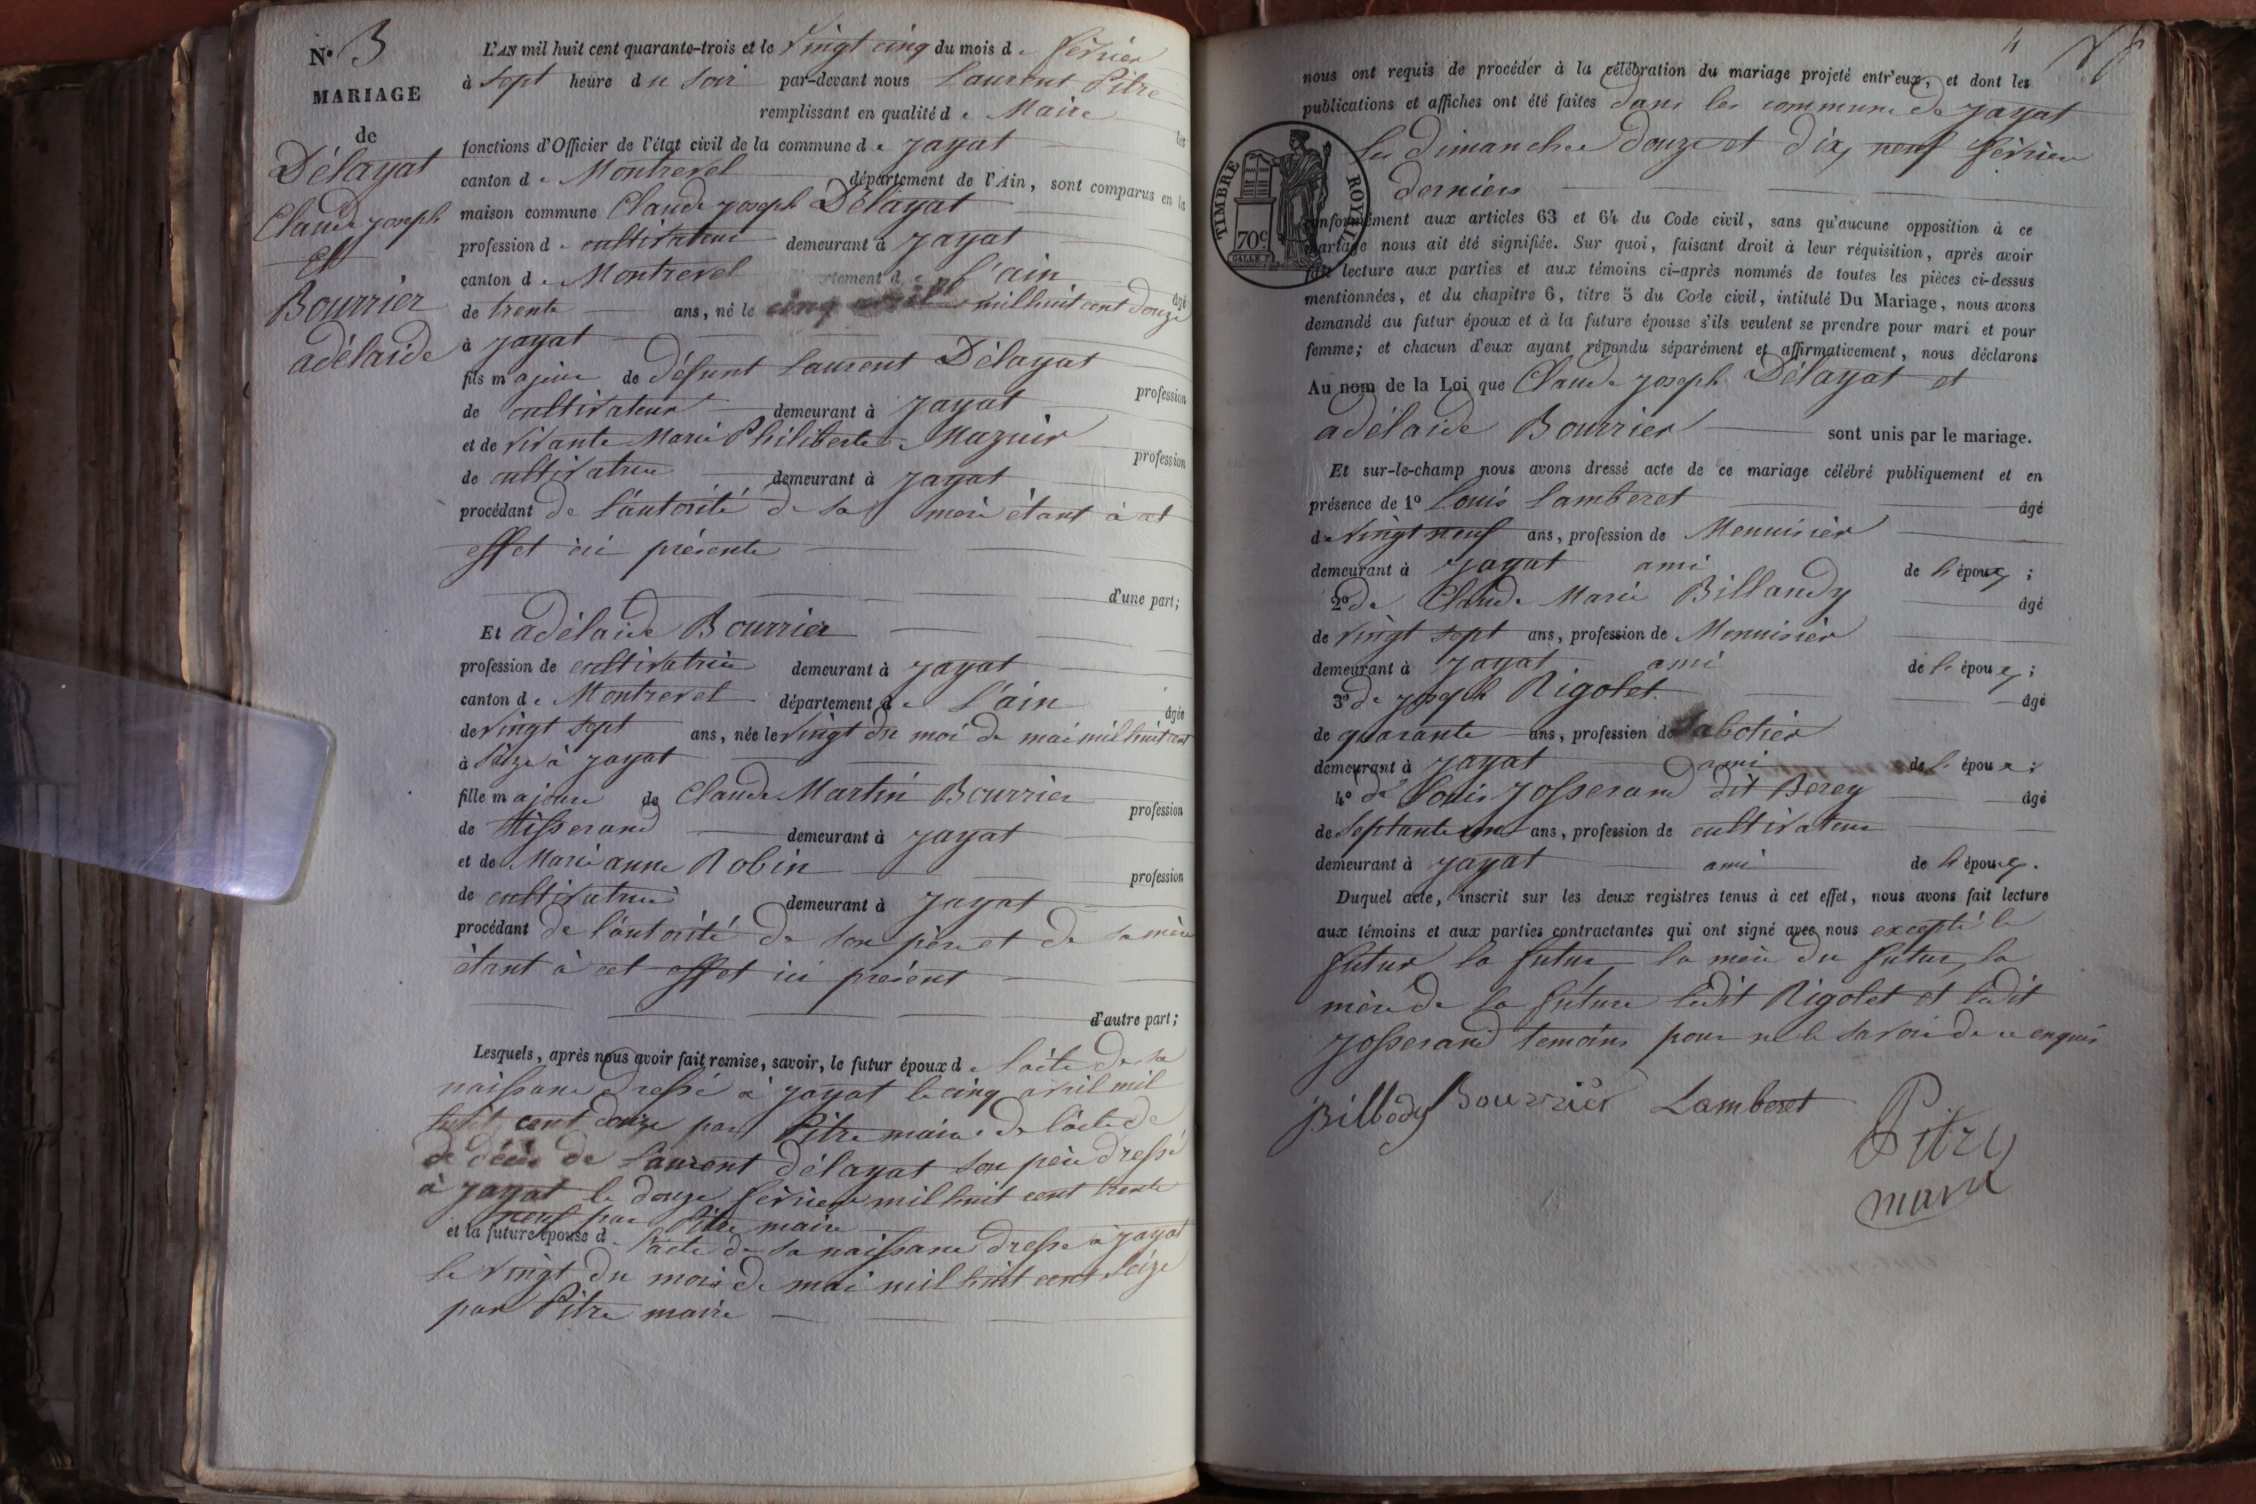 N.° 3
MARIAGE
de
Délayat
Claude joseph
Et
Bourrier
adélaïde
L'AN mil huit cent quarante-trois et le vingt cinq du mois de février
à sept heure du soir par-devant nous Laurent Pitre
remplissant en qualité de Maire les
fonctions d'Officier de l'état civil de la commune de jayat
canton de Montrevel département de l'Ain, sont comparus en la
maison commune Claude joseph Délayat
profession de cultivateur demeurant à jayat
canton de Montrevel département de l'ain âgé
de trente ans, né le cinq avril mil huit cent douze
à jayat
fils majeur de défunt Laurent Délayat profession
de cultivateur demeurant à jayat
et de vivante Marie Philiberte Mazuir profession
de cultivatrice demeurant à jayat
procédant de l'autorité de sa mère étant à cet
effet ici présente
d'une part;
Et adélaïde Bourrier
profession de cultivatrice demeurant à jayat
canton de Montrevel département de L'ain âgée
de vingt sept ans, née le vingt du moi de mai mil huit cent
à seize à jayat
fille majeure de Claude Martin Bourrier profession
de tisserand demeurant à jayat
et de Marie anne Robin profession
de cultivatrice demeurant à jayat
procédant de l'autorité de son père et de sa mère
étant à cet effet ici présent
d'autre part;
Lesquels, après nous avoir fait remise, savoir, le futur époux de l'acte de sa
naissance dressé à jayat le cinq avril mil
huit cent douze par Pitre maire de l'acte de
de décès de Laurent délayat son père dressé
à jayat le douze février mil huit cent trente
neuf par Pitre maire
et la future épouse d l'acte de sa naissance dressé à jayat
le vingt du mois de mai mil huit cent seize
par Pitre maire
4
nous ont requis de procéder à la célébration du mariage projeté entr'eux, et dont les
publications et affiches ont été faites dans les commune de jayat
les dimanche douze et dix neuf février
derniers
TIMBRE ROYAL
70c
conformément aux articles 63 et 64 du Code civil, sans qu'aucune opposition à ce
mariage nous ait été signifiée. Sur quoi, faisant droit à leur réquisition, après avoir
fait lecture aux parties et aux témoins ci-après nommés de toutes les pièces ci-dessus
mentionnées, et du chapitre 6, titre 5 du Code civil, intitulé Du Mariage, nous avons
demandé au futur époux et à la future épouse s'ils veulent se prendre pour mari et pour
femme; et chacun d'eux ayant répondu séparément et affirmativement, nous déclarons
Au nom de la Loi que Claude joseph Délayat et
adélaïde Bourrier sont unis par le mariage.
Et sur-le-champ nous avons dressé acte de ce mariage célébré publiquement et en
présence de 1° Louis Lamberet âgé
de vingt neuf ans, profession de Menuisier
demeurant à jayat ami de l'époux;
2° de Claude Marie Billaudy âgé
de vingt sept ans, profession de Menuisier
demeurant à jayat ami de l'époux;
3° de joseph Rigolet âgé
de quarante ans, profession de Sabotier
demeurant à jayat ami de l'époux;
4° de Louis josserand dit Berey âgé
de septante un ans, profession de cultivateur
demeurant à jayat ami de l'époux.
Duquel acte, inscrit sur les deux registres tenus à cet effet, nous avons fait lecture
aux témoins et aux parties contractantes qui ont signé avec nous excepté le
futur la future la mère du futur, la
mère de la future ledit Rigolet et ledit
josserand temoins pour ne le savoir de ce enquis
Billody Bourrier Lamberet
Pitre
maire